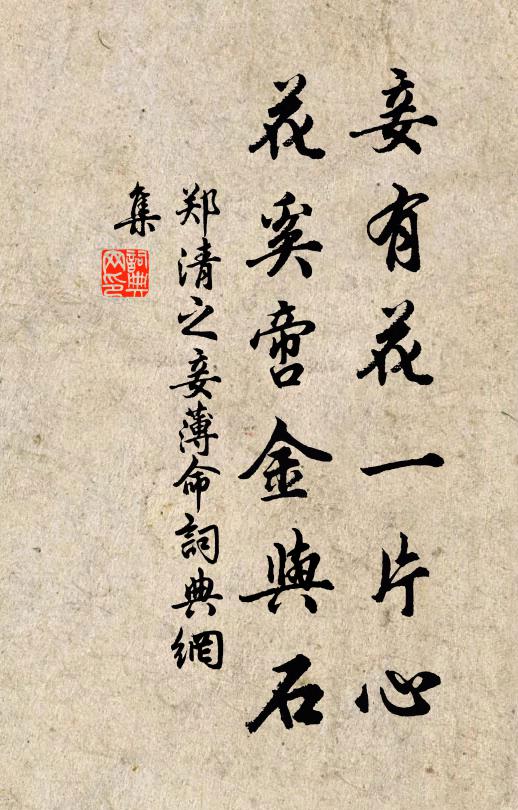 妾有花一片心
花奚啻金與石
郑清之妾薄命詞典網
集
詞典网印